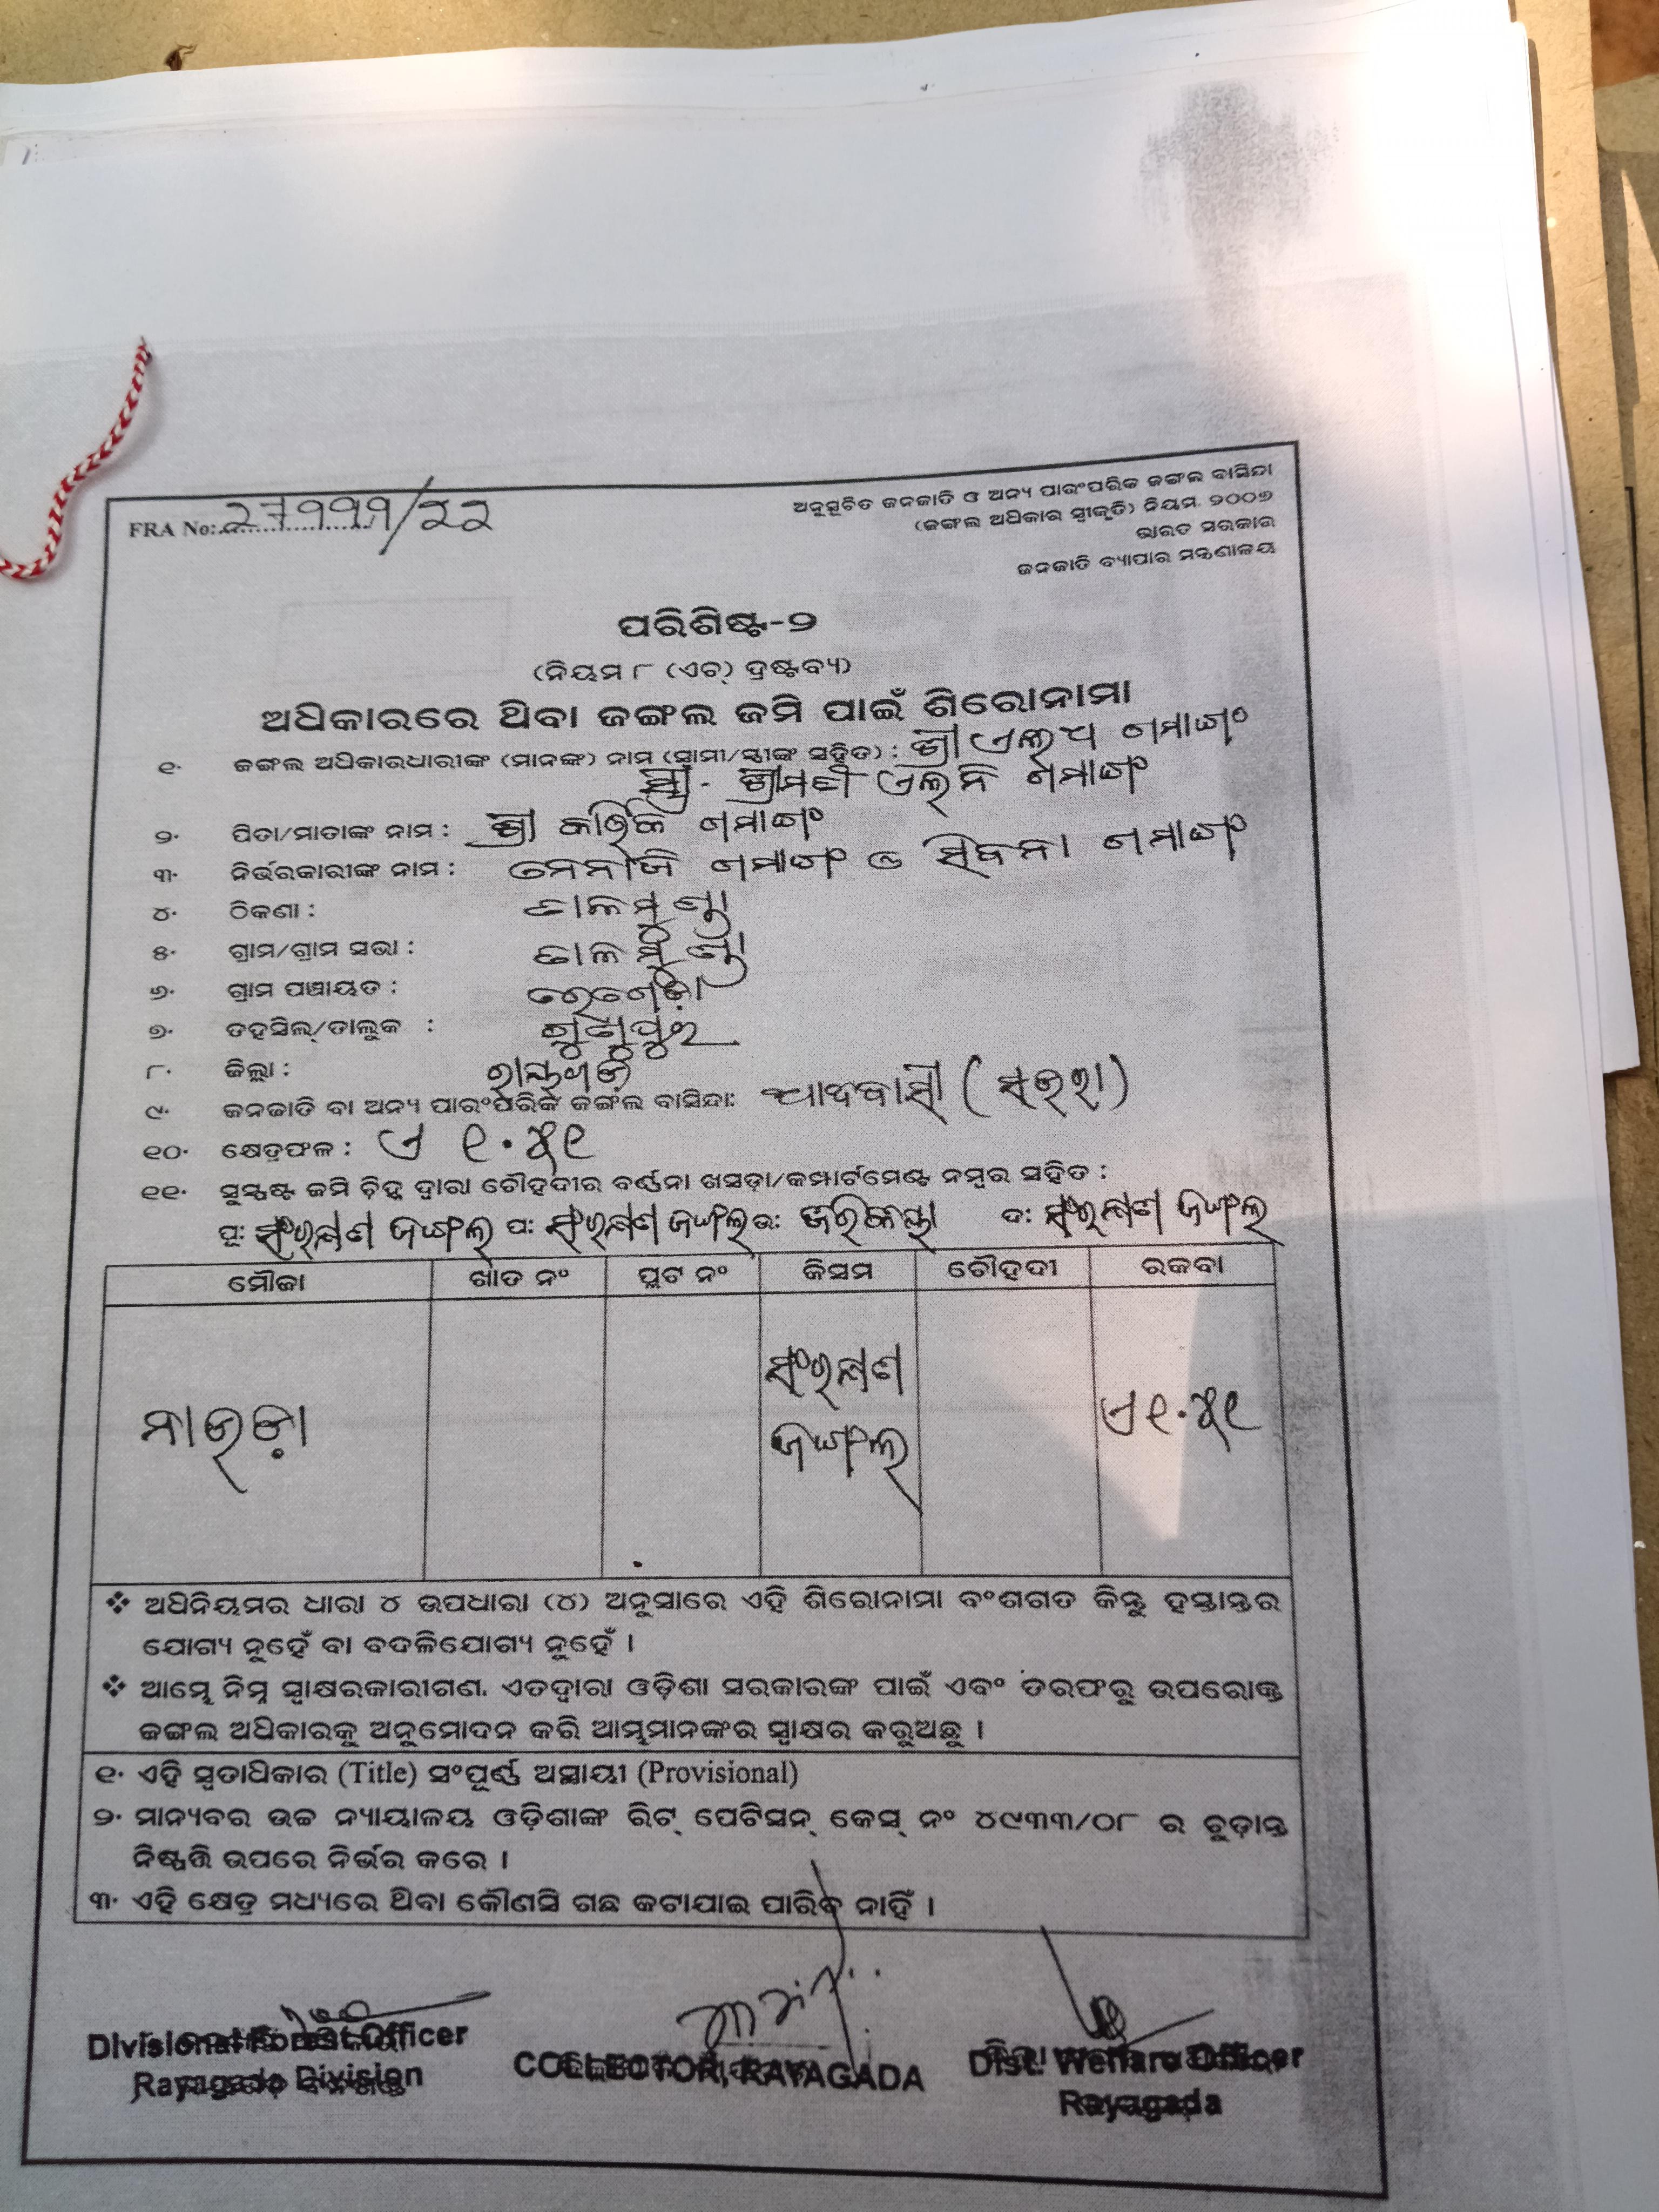 FRA No: 27999/22
ଅନୁସୂଚିତ ଜନଜାତି ଓ ଅନ୍ୟ ପାରଂପରିକ ଜଙ୍ଗଲ ବାସିନ୍ଦା
(ଜଙ୍ଗଲ ଅଧିକାର ସ୍ୱୀକୃତି) ନିୟମ ୨୦୦୭
ଭାରତ ସରକାର
ଜନଜାତି ବ୍ୟାପାର ମନ୍ତ୍ରଣାଳୟ
ପରିଶିଷ୍ଟ-୨
(ନିୟମ ୮ (ଏଚ୍) ଦ୍ରଷ୍ଟବ୍ୟ)
ଅଧିକାରରେ ଥିବା ଜଙ୍ଗଲ ଜମି ପାଇଁ ଶିରୋନାମା
୧. ଜଙ୍ଗଲ ଅଧିକାରଧାରୀଙ୍କ (ମାନଙ୍କ) ନାମ (ସ୍ୱାମୀ/ସ୍ତ୍ରୀଙ୍କ ସହିତ) : ଶ୍ରୀ ଗମାଙ୍ଗ
ସ୍ତ୍ରୀ- ଶ୍ରୀମତୀ ଗମାଙ୍ଗ
୨. ପିତା/ମାତାଙ୍କ ନାମ : ଶ୍ରୀ କାର୍ତ୍ତିକ ଗମାଙ୍ଗ
୩. ନିର୍ଭରକାରୀଙ୍କ ନାମ : ଗମାଙ୍ଗ ଓ ଗମାଙ୍ଗ
୪. ଠିକଣା : ତାଳମୁଣ୍ଡା
୫. ଗ୍ରାମ/ଗ୍ରାମ ସଭା : ତାଳମୁଣ୍ଡା
୬. ଗ୍ରାମ ପଞ୍ଚାୟତ :
୭. ତହସିଲ୍/ତାଲୁକ : ଗୁଣୁପୁର
୮. ଜିଲ୍ଲା : ରାୟଗଡ଼
୯. ଜନଜାତି ବା ଅନ୍ୟ ପାରଂପରିକ ଜଙ୍ଗଲ ବାସିନ୍ଦା: ଆଦିବାସୀ (ସଉରା)
୧୦. କ୍ଷେତ୍ରଫଳ : ଏ ୧.୫୧
୧୧. ସୁସ୍ପଷ୍ଟ ଜମି ଚିହ୍ନ ଦ୍ୱାରା ଚୌହଦୀର ବର୍ଣ୍ଣନା ଖସଡ଼ା/କମ୍ପାର୍ଟମେଣ୍ଟ ନମ୍ବର ସହିତ :
ପୂ: ସଂରକ୍ଷଣ ଜଙ୍ଗଲ ପ: ସଂରକ୍ଷଣ ଜଙ୍ଗଲ ଉ: ଦ: ସଂରକ୍ଷଣ ଜଙ୍ଗଲ
ମୌଜା ଖାତା ନଂ ପ୍ଲଟ ନଂ କିସମ ଚୌହଦୀ ରକବା
ସଂରକ୍ଷଣ
ନାଉଡ଼ା ଏ ୧.୫୧
ଜଙ୍ଗଲ
❖ ଅଧିନିୟମର ଧାରା ୪ ଉପଧାରା (୪) ଅନୁସାରେ ଏହି ଶିରୋନାମା ବଂଶଗତ କିନ୍ତୁ ହସ୍ତାନ୍ତର
ଯୋଗ୍ୟ ନୁହେଁ ବା ବଦଳିଯୋଗ୍ୟ ନୁହେଁ ।
❖ ଆମ୍ଭେ ନିମ୍ନ ସ୍ୱାକ୍ଷରକାରୀଗଣ, ଏତଦ୍ୱାରା ଓଡ଼ିଶା ସରକାରଙ୍କ ପାଇଁ ଏବଂ ତରଫରୁ ଉପରୋକ୍ତ
ଜଙ୍ଗଲ ଅଧିକାରକୁ ଅନୁମୋଦନ କରି ଆମ୍ଭମାନଙ୍କର ସ୍ୱାକ୍ଷର କରୁଅଛୁ ।
୧. ଏହି ସ୍ୱତାଧିକାର (Title) ସଂପୂର୍ଣ୍ଣ ଅସ୍ଥାୟୀ (Provisional)
୨. ମାନ୍ୟବର ଉଚ୍ଚ ନ୍ୟାୟାଳୟ ଓଡ଼ିଶାଙ୍କ ରିଟ୍ ପେଟିସନ୍ କେସ୍ ନଂ ୪୯୩୩/୦୮ ର ଚୁଡ଼ାନ୍ତ
ନିଷ୍ପତ୍ତି ଉପରେ ନିର୍ଭର କରେ ।
୩. ଏହି କ୍ଷେତ୍ର ମଧ୍ୟରେ ଥିବା କୌଣସି ଗଛ କଟାଯାଇ ପାରିବ ନାହିଁ ।
Divisional Forest Officer
Rayagada Division
COLLECTOR, RAYAGADA
Dist. Welfare Officer
Rayagada